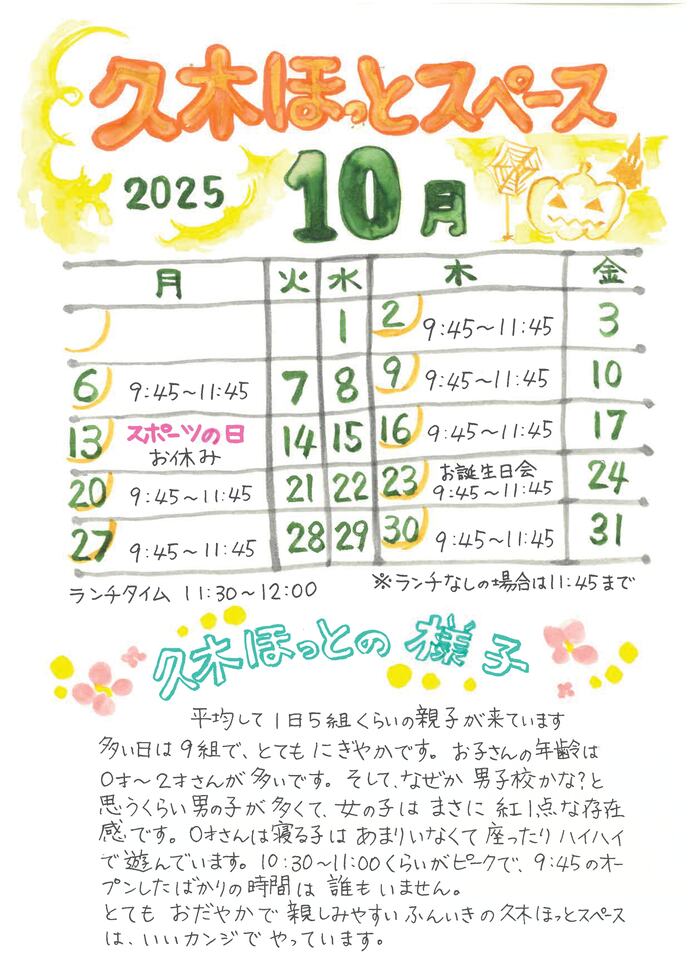 久木ほっとスペース
2025 10月
月 火 水 木 金
1 2 9:45～11:45 3
6 9:45～11:45 7 8 9 9:45～11:45 10
13 スポーツの日 お休み 14 15 16 9:45～11:45 17
20 9:45～11:45 21 22 23 お誕生日会 9:45～11:45 24
27 9:45～11:45 28 29 30 9:45～11:45 31
ランチタイム 11:30～12:00 ※ランチなしの場合は11:45まで
久木ほっとの様子
平均して1日5組くらいの親子が来ています
多い日は9組で、とてもにぎやかです。お子さんの年齢は
0才～2才さんが多いです。そして、なぜか男子校かな?と
思うくらい男の子が多くて、女の子はまさに紅1点な存在
感です。0才さんは寝る子はあまりいなくて座ったりハイハイ
で遊んでいます。10:30～11:00くらいがピークで、9:45のオー
プンしたばかりの時間は誰もいません。
とてもおだやかで親しみやすいふんいきの久木ほっとスペース
は、いいカンジでやっています。